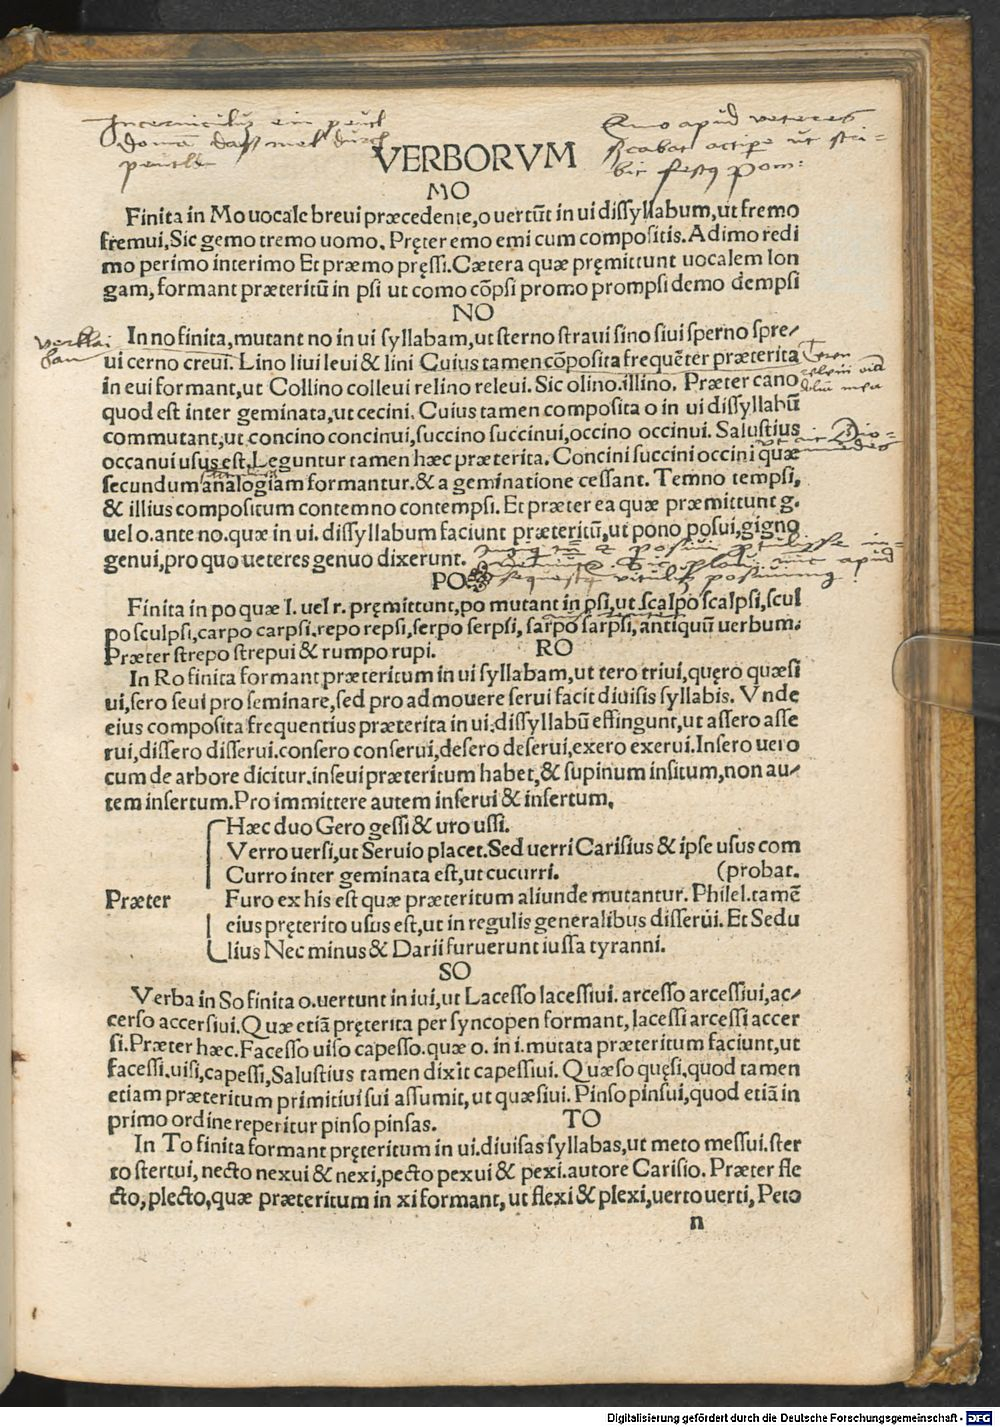 VERBORVM
MO
Finita in Mo uocale breui præcedente, o uertũt in ui dissyllabum, ut fremo
fremui, Sic gemo tremo uomo. Pręter emo emi cum compositis. Adimo redi
mo perimo interimo Et præmo pręssi. Cætera quæ pręmittunt uocalem lon
gam, formant præteritũ in psi ut como cõpsi promo prompsi demo dempsi
NO
In no finita, mutant no in ui syllabam, ut sterno straui sino siui sperno spre-
ui cerno creui. Lino liui leui & lini Cuius tamen cõposita frequẽter præterita
in eui formant, ut Collino colleui relino releui. Sic olino. illino. Præter cano
quod est inter geminata, ut cecini. Cuius tamen composita o in ui dissyllabũ
commutant, ut concino concinui, succino succinui, occino occinui. Salustius
occanui usus est. Leguntur tamen hæc præterita. Concini succini occini quæ
secundum analogiam formantur. & a geminatione cessant. Temno tempsi,
& illius compositum contemno contempsi. Et præter ea quæ præmittunt g.
uel o. ante no. quæ in ui. dissyllabum faciunt præteritũ, ut pono posui, gigno
genui, pro quo ueteres genuo dixerunt.
PO
Finita in po quæ l. uel r. pręmittunt, po mutant in psi, ut scalpo scalpsi, scul
po sculpsi, carpo carpsi. repo repsi, serpo serpsi, sarpo sarpsi, antiquũ uerbum.
Præter strepo strepui & rumpo rupi.
RO
In Ro finita formant præteritum in ui syllabam, ut tero triui, quęro quæsi
ui, sero seui pro seminare, sed pro admouere serui facit diuisis syllabis. Vnde
eius composita frequentius præterita in ui. dissyllabũ effingunt, ut assero asse
rui, dissero disserui. consero conserui, desero deserui, exero exerui. Insero uero
cum de arbore dicitur. inseui præteritum habet, & supinum insitum, non au-
tem insertum. Pro immittere autem inserui & insertum.
Hæc duo Gero gessi & uro ussi.
Verro uersi, ut Seruio placet. Sed uerri Carisius & ipse usus com
Curro inter geminata est, ut cucurri. (probat.
Præter Furo ex his est quæ præteritum aliunde mutantur. Philel. tamẽ
eius pręterito usus est, ut in regulis generalibus disserui. Et Sedu
lius Nec minus & Darii furuerunt iussa tyranni.
SO
Verba in So finita o. uertunt in iui, ut Lacesso lacessiui. arcesso arcessiui, ac-
cerso accersiui. Quæ etiã pręterita per syncopen formant, lacessi arcessi accer
si. Præter hæc. Facesso uiso capesso. quæ o. in i. mutata præteritum faciunt, ut
facessi. uisi, capessi, Salustius tamen dixit capessiui. Quæso quęsi, quod tamen
etiam præteritum primitiui sui assumit, ut quæsiui. Pinso pinsui, quod etiã in
primo ordine reperitur pinso pinsas.
TO
In To finita formant pręteritum in ui. diuisas syllabas, ut meto messui. ster
to stertui, necto nexui & nexi, pecto pexui & pexi. autore Carisio. Præter fle
cto, plecto, quæ præteritum in xi formant, ut flexi & plexi, uerto uerti, Peto
n
Digitalisierung gefördert durch die Deutsche Forschungsgemeinschaft - DFG